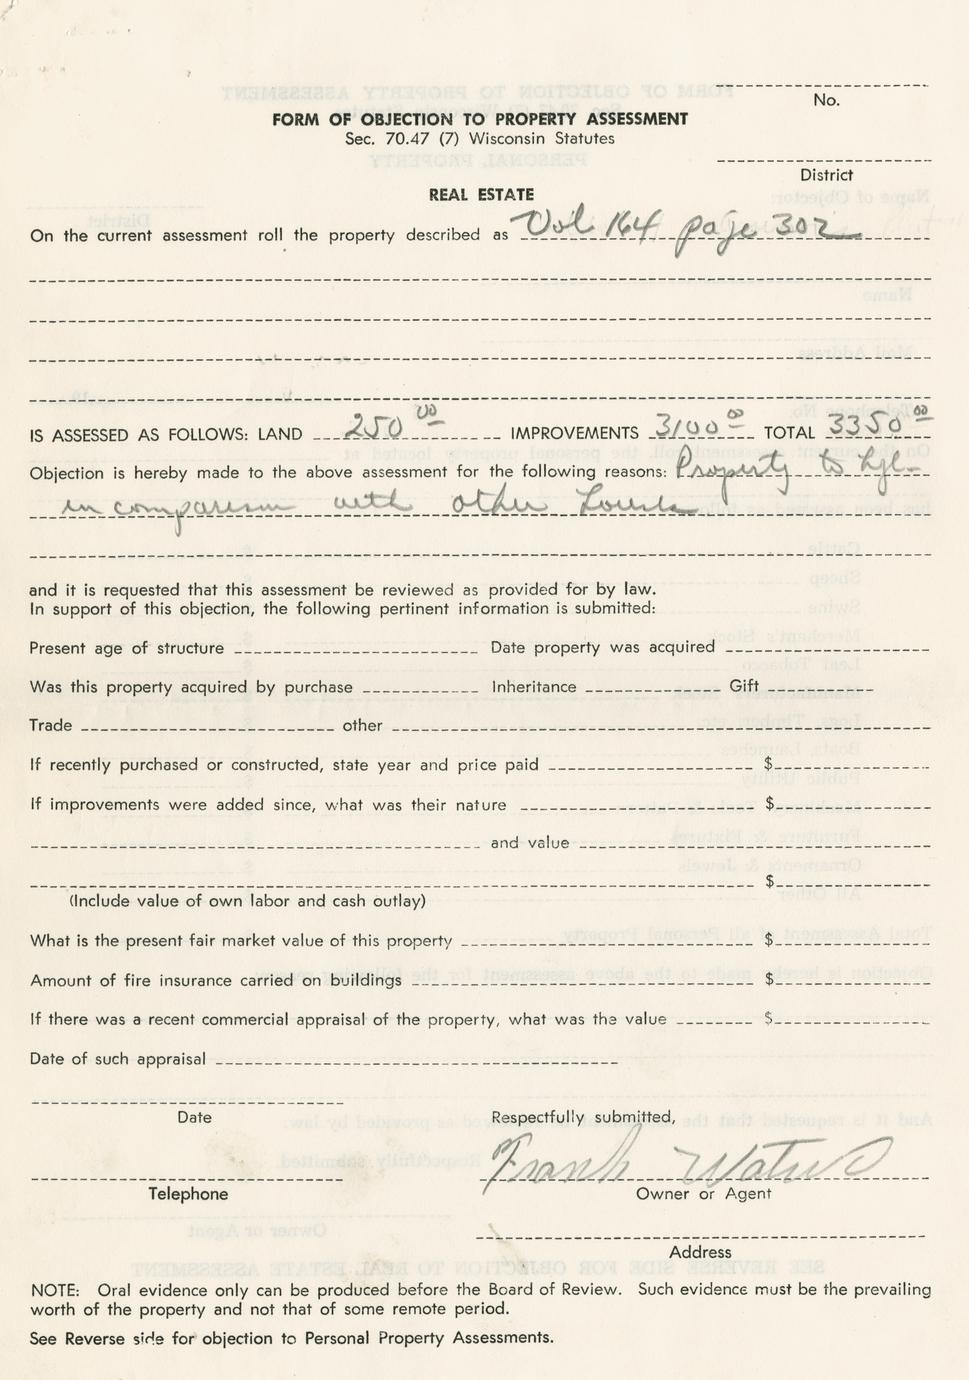 No.
FORM OF OBJECTION TO PROPERTY ASSESSMENT
Sec. 70.47 (7) Wisconsin Statutes
District
REAL ESTATE
On the current assessment roll the property described as Vol 164 page 302
IS ASSESSED AS FOLLOWS: LAND 250 00 IMPROVEMENTS 3100 00 TOTAL 3350 00
Objection is hereby made to the above assessment for the following reasons: Property to
in comparison with other
and it is requested that this assessment be reviewed as provided for by law.
In support of this objection, the following pertinent information is submitted:
Present age of structure Date property was acquired
Was this property acquired by purchase Inheritance Gift
Trade other
If recently purchased or constructed, state year and price paid $
If improvements were added since, what was their nature $
and value
$
(Include value of own labor and cash outlay)
What is the present fair market value of this property $
Amount of fire insurance carried on buildings $
If there was a recent commercial appraisal of the property, what was the value $
Date of such appraisal
Date
Respectfully submitted,
Frank
Telephone
Owner or Agent
Address
NOTE: Oral evidence only can be produced before the Board of Review. Such evidence must be the prevailing
worth of the property and not that of some remote period.
See Reverse side for objection to Personal Property Assessments.